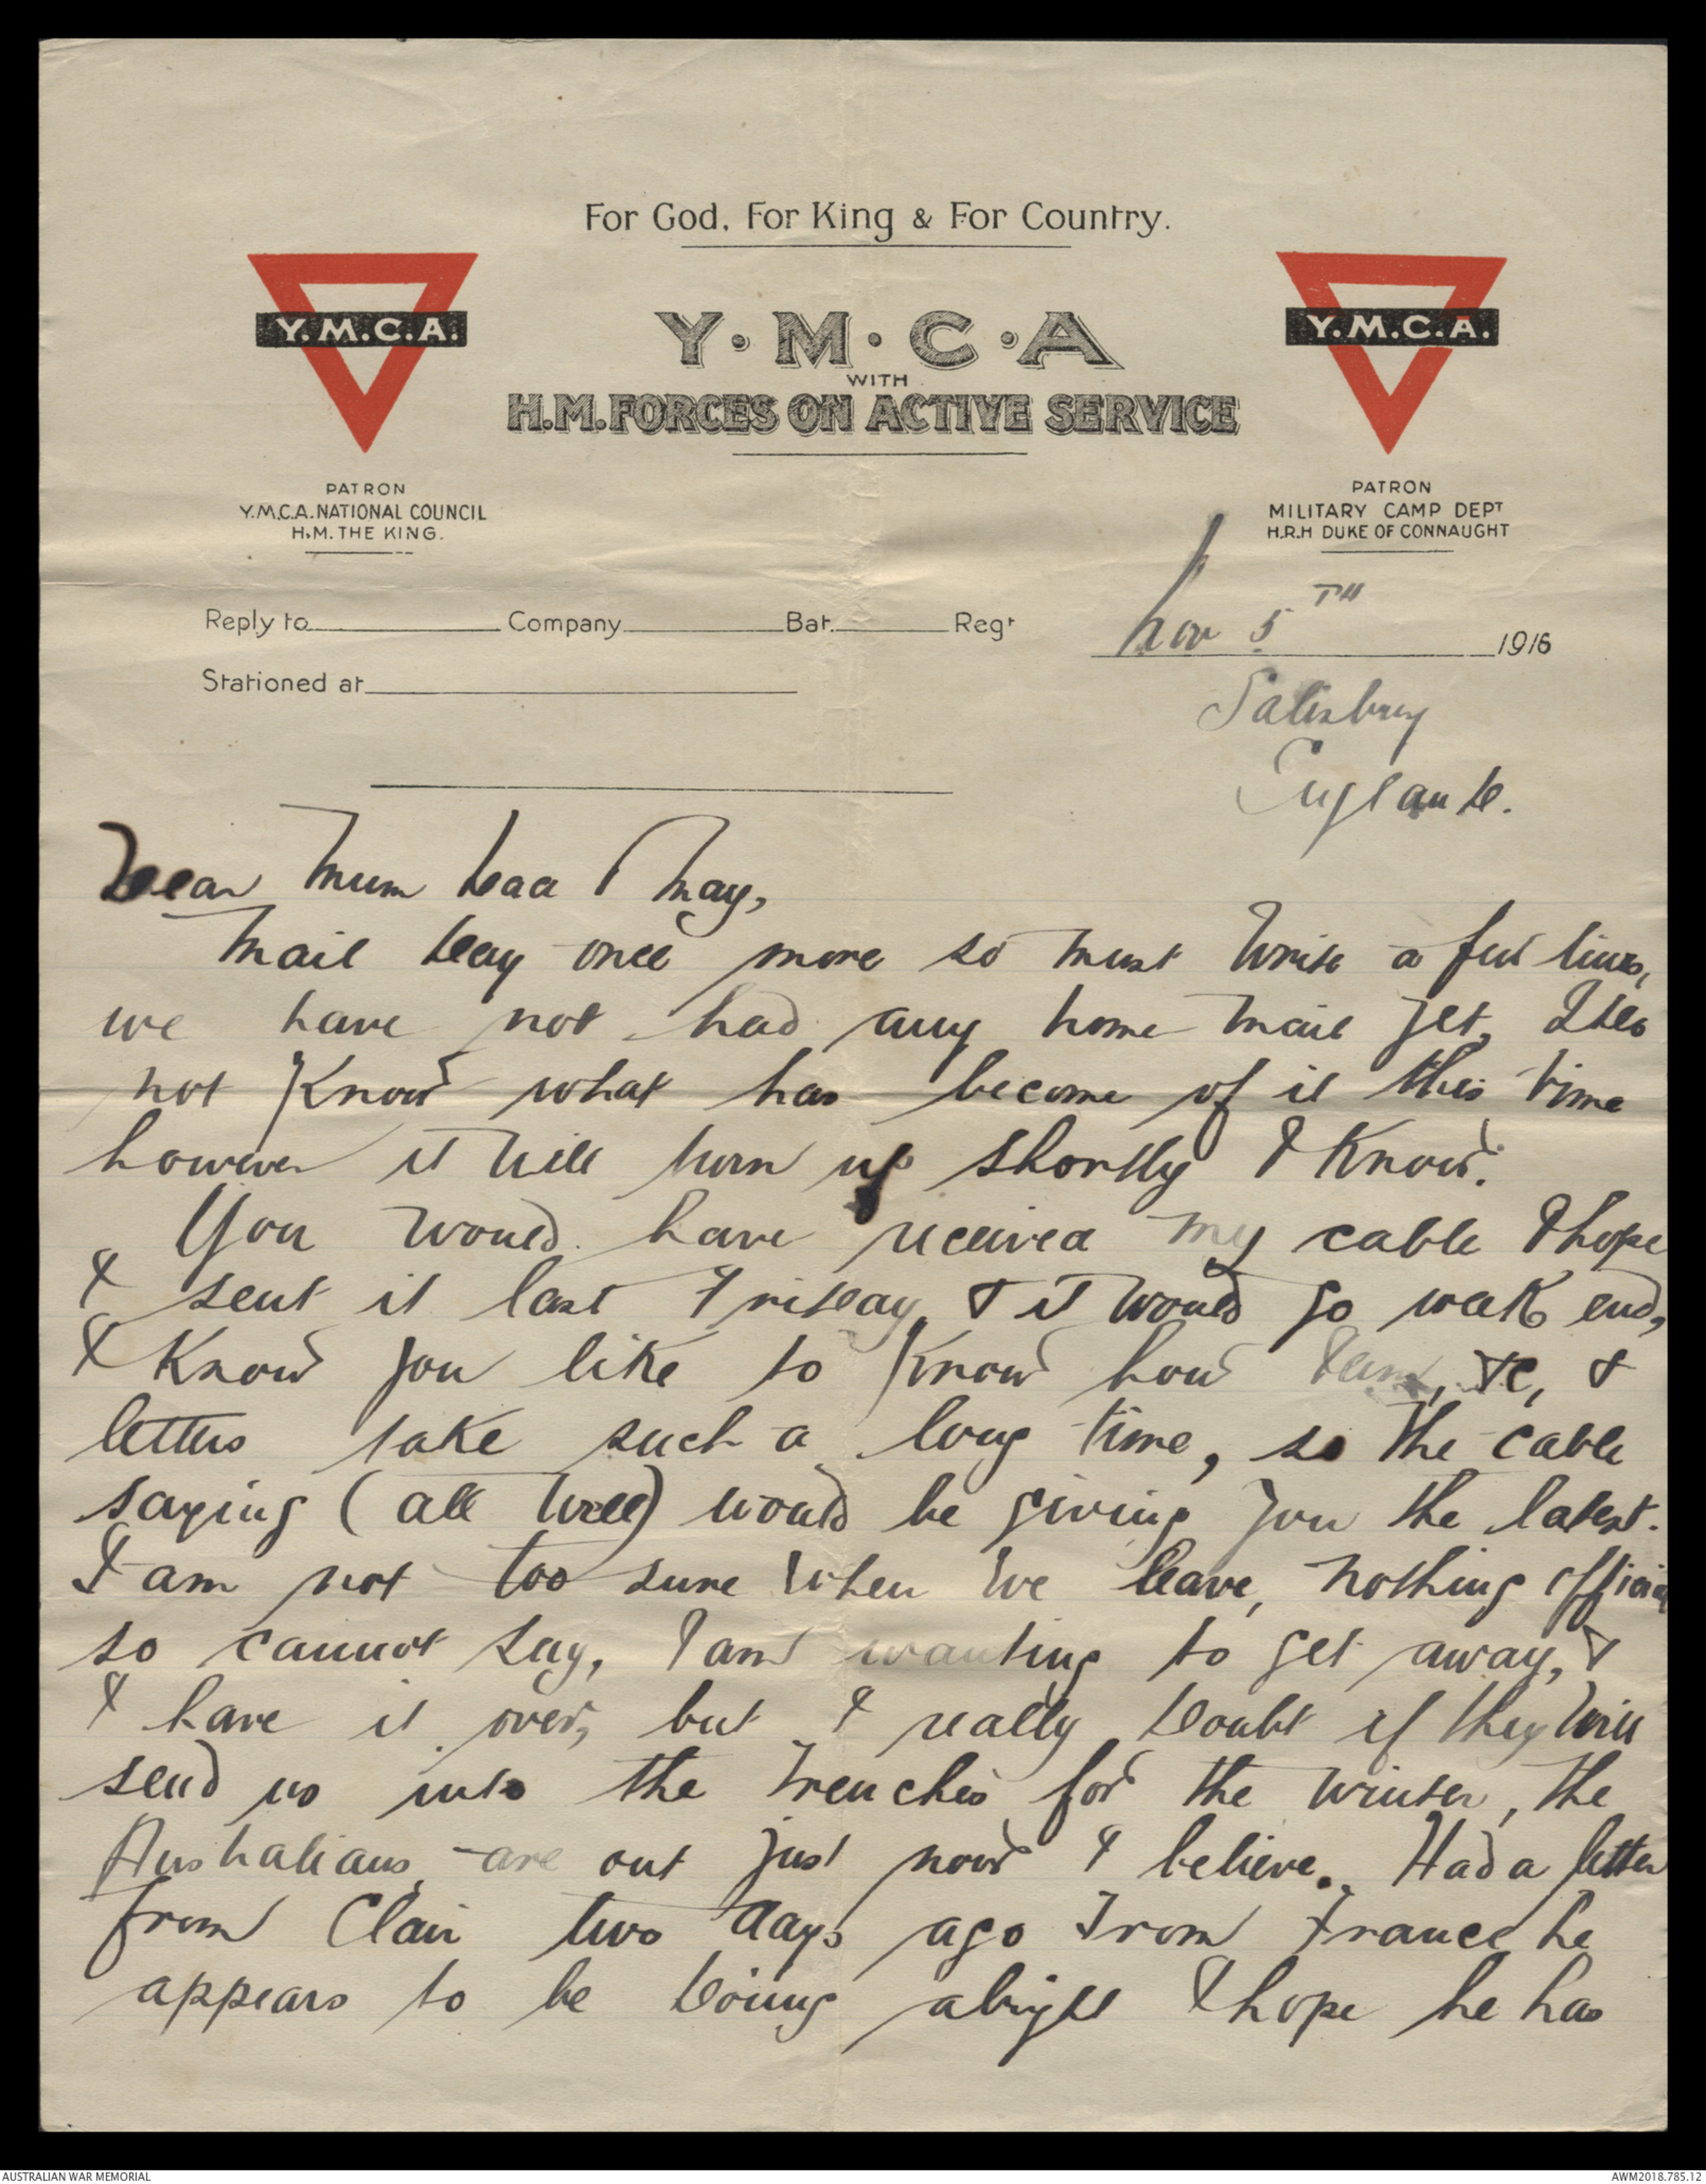 For God, For King & For Country.
Y.M.C.A.
Y.M.C.A
WITH
H.M. FORCES ON ACTIVE SERVICE
Y.M.C.A.
PATRON
Y.M.C.A. NATIONAL COUNCIL
H.M. THE KING.
PATRON
MILITARY CAMP DEPT
H.R.H DUKE OF CONNAUGHT
Reply to Company Bat. Regt
Nov 5TH 1916
Stationed at
Salisbury
England.
Dear Mum Dad & May,
Mail day once more so must write a few lines,
we have not had any home mail yet, I do
not know what has become of it this time
however it will turn up shortly I know.
You would have received my cable I hope
I sent it last Friday, & it would go week end,
I know you like to know how I am, &c, &
letters take such a long time, so the cable
saying (all well) would be giving you the latest.
I am not too sure when we leave, nothing official
so cannot say, I am wanting to get away, &
I have it over, but I really doubt if they will
send us into the trenches for the winter, the
Australians are out just now I believe. Had a letter
from Clair two days ago from France he
appears to be doing alright I hope he has
AUSTRALIAN WAR MEMORIAL
AWM2018.785.12